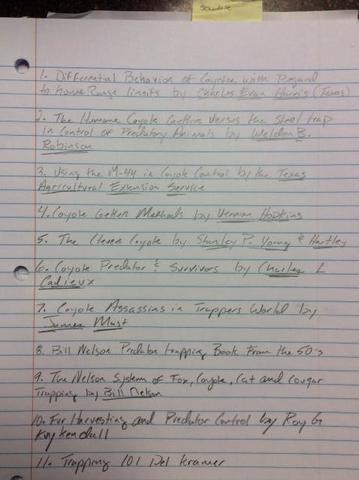 Schedule
1. Differential Behavior of Coyotes with Regard
to home Range limits by Charles Evan Harris (Texas)
2. The Humane Coyote Getter Versus the Steel trap
in Control of Predatory Animals by Weldon B.
Robinson
3. Using the M-44 in Coyote Control by the Texas
Agricultural Extension Service
4. Coyote Getter Methods by Vernon Hopkins
5. The Clever Coyote by Stanley P. Young & Hartley
6. Coyote Predator & Survivors by Charles L
Cadieux
7. Coyote Assassins in Trappers World by
James Mast
8. Bill Nelson Predator trapping Book From the 50's
9. The Nelson System of Fox, Coyote, Cat and Cougar
Trapping by Bill Nelson
10. Fur Harvesting and Predator Control by Roy G
Kuykendull
11. Trapping 101 Del Kramer